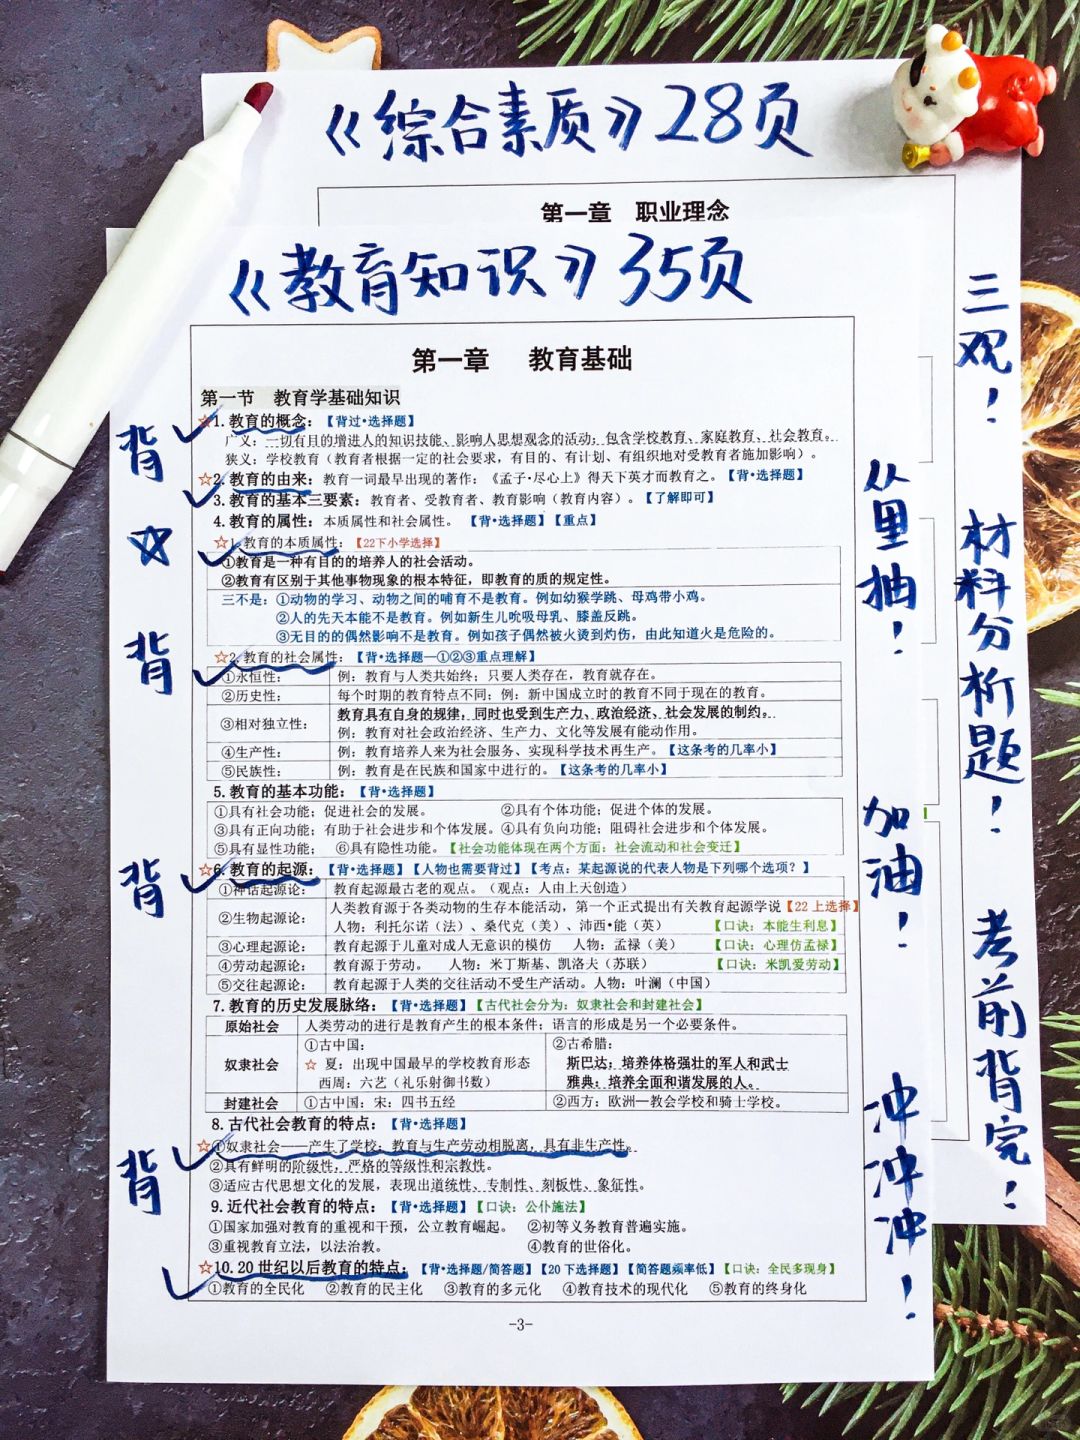 《综合素质》28页
第一章 职业理念
《教育知识》35页
第一章 教育基础
第一节 教育学基础知识
☆1. 教育的概念：【背过•选择题】
广义：一切有目的增进人的知识技能、影响人思想观念的活动；包含学校教育、家庭教育、社会教育。
狭义：学校教育（教育者根据一定的社会要求，有目的、有计划、有组织地对受教育者施加影响）。
☆2. 教育的由来：教育一词最早出现的著作：《孟子•尽心上》得天下英才而教育之。【背•选择题】
3. 教育的基本三要素：教育者、受教育者、教育影响（教育内容）。【了解即可】
4. 教育的属性：本质属性和社会属性。【背•选择题】【重点】
☆1. 教育的本质属性：【22下小学选择】
①教育是一种有目的的培养人的社会活动。
②教育有区别于其他事物现象的根本特征，即教育的质的规定性。
三不是：①动物的学习、动物之间的哺育不是教育。例如幼猴学跳、母鸡带小鸡。
②人的先天本能不是教育。例如新生儿吮吸母乳、膝盖反跳。
③无目的的偶然影响不是教育。例如孩子偶然被火烫到灼伤，由此知道火是危险的。
☆2. 教育的社会属性：【背•选择题—①②③重点理解】
①永恒性： 例：教育与人类共始终；只要人类存在，教育就存在。
②历史性： 每个时期的教育特点不同；例：新中国成立时的教育不同于现在的教育。
③相对独立性： 教育具有自身的规律；同时也受到生产力、政治经济、社会发展的制约。
例：教育对社会政治经济、生产力、文化等发展有能动作用。
④生产性： 例：教育培养人来为社会服务、实现科学技术再生产。【这条考的几率小】
⑤民族性： 例：教育是在民族和国家中进行的。【这条考的几率小】
5. 教育的基本功能：【背•选择题】
①具有社会功能；促进社会的发展。 ②具有个体功能；促进个体的发展。
③具有正向功能；有助于社会进步和个体发展。④具有负向功能；阻碍社会进步和个体发展。
⑤具有显性功能； ⑥具有隐性功能。【社会功能体现在两个方面：社会流动和社会变迁】
☆6. 教育的起源：【背•选择题】【人物也需要背过】【考点：某起源说的代表人物是下列哪个选项？】
①神话起源论： 教育起源最古老的观点。（观点：人由上天创造）
②生物起源论： 人类教育源于各类动物的生存本能活动，第一个正式提出有关教育起源学说【22上选择】
人物：利托尔诺（法）、桑代克（美）、沛西•能（英） 【口诀：本能生利息】
③心理起源论： 教育起源于儿童对成人无意识的模仿 人物：孟禄（美） 【口诀：心理仿孟禄】
④劳动起源论： 教育源于劳动。 人物：米丁斯基、凯洛夫（苏联） 【口诀：米凯爱劳动】
⑤交往起源论： 教育起源于人类的交往活动不受生产活动。人物：叶澜（中国）
7. 教育的历史发展脉络：【背•选择题】【古代社会分为：奴隶社会和封建社会】
原始社会 人类劳动的进行是教育产生的根本条件；语言的形成是另一个必要条件。
奴隶社会 ①古中国： ②古希腊：
☆ 夏：出现中国最早的学校教育形态 斯巴达：培养体格强壮的军人和武士
西周：六艺（礼乐射御书数） 雅典：培养全面和谐发展的人。
封建社会 ①古中国：宋：四书五经 ②西方：欧洲—教会学校和骑士学校。
8. 古代社会教育的特点：【背•选择题】
☆①奴隶社会——产生了学校；教育与生产劳动相脱离，具有非生产性。
②具有鲜明的阶级性，严格的等级性和宗教性。
③适应古代思想文化的发展，表现出道统性、专制性、刻板性、象征性。
9. 近代社会教育的特点：【背•选择题】【口诀：公仆施法】
①国家加强对教育的重视和干预，公立教育崛起。 ②初等义务教育普遍实施。
③重视教育立法，以法治教。 ④教育的世俗化。
☆10.20世纪以后教育的特点：【背•选择题/简答题】【20下选择题】【简答题频率低】【口诀：全民多现身】
①教育的全民化 ②教育的民主化 ③教育的多元化 ④教育技术的现代化 ⑤教育的终身化
-3-
背
☆
背
背
背
从里抽！
加油！
冲冲冲！
三观！
材料分析题！
考前背完！